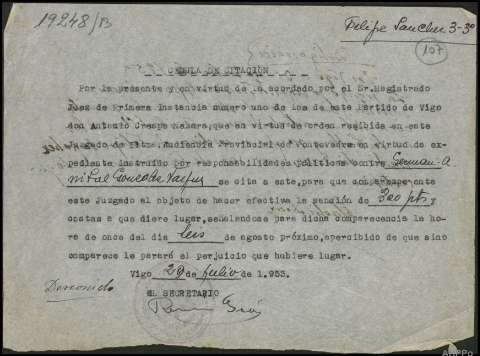 19248/B
Felipe Sanchez 3-3º
107
CEDULA DE CITACION
Por la presente y en virtud de lo acordado por el Sr. Magistrado
Juez de Primera Instancia numero uno de los de este Partido de Vigo
don Antonio Crespo que en virtud de orden recibida en este
Juzgado de Iltma. Audiencia Provincial de Pontevedra en virtud de ex-
pediente instruido por responsabilidades Politicas contra German A-
nibal Gonzalez se cita a este, para que comparezca ente
este Juzgado al objeto de hacer efectiva la sanción de 300 pts y
costas a que diere lugar, señalandose para dicha comparecencia la ho-
ra de once del dia seis de agosto próximo, apercibido de que sino
comparece le parará el perjuicio que hubiere lugar.
Vigo, 29 de julio de 1.953.
Desconocido
EL SECRETARIO
AHPPo